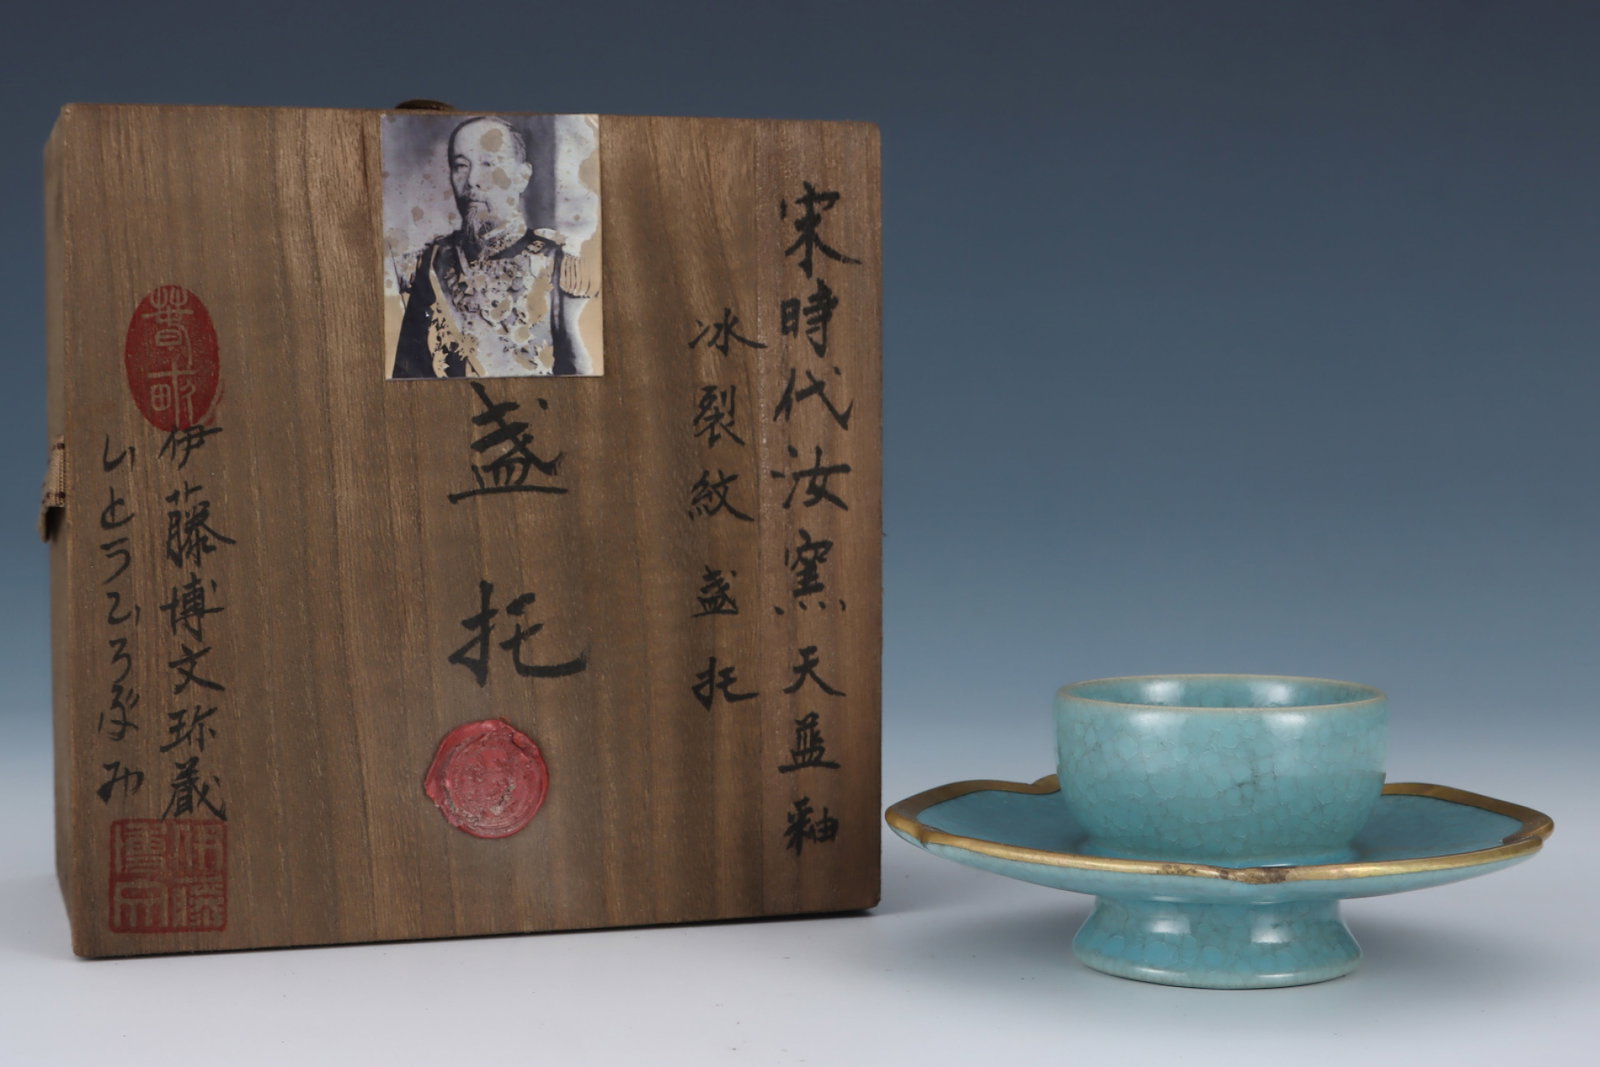 宋時代汝窯天藍釉
冰裂紋盞托
盞托
伊藤博文珎藏
いとうひろぶみ
春畝
伊藤博文